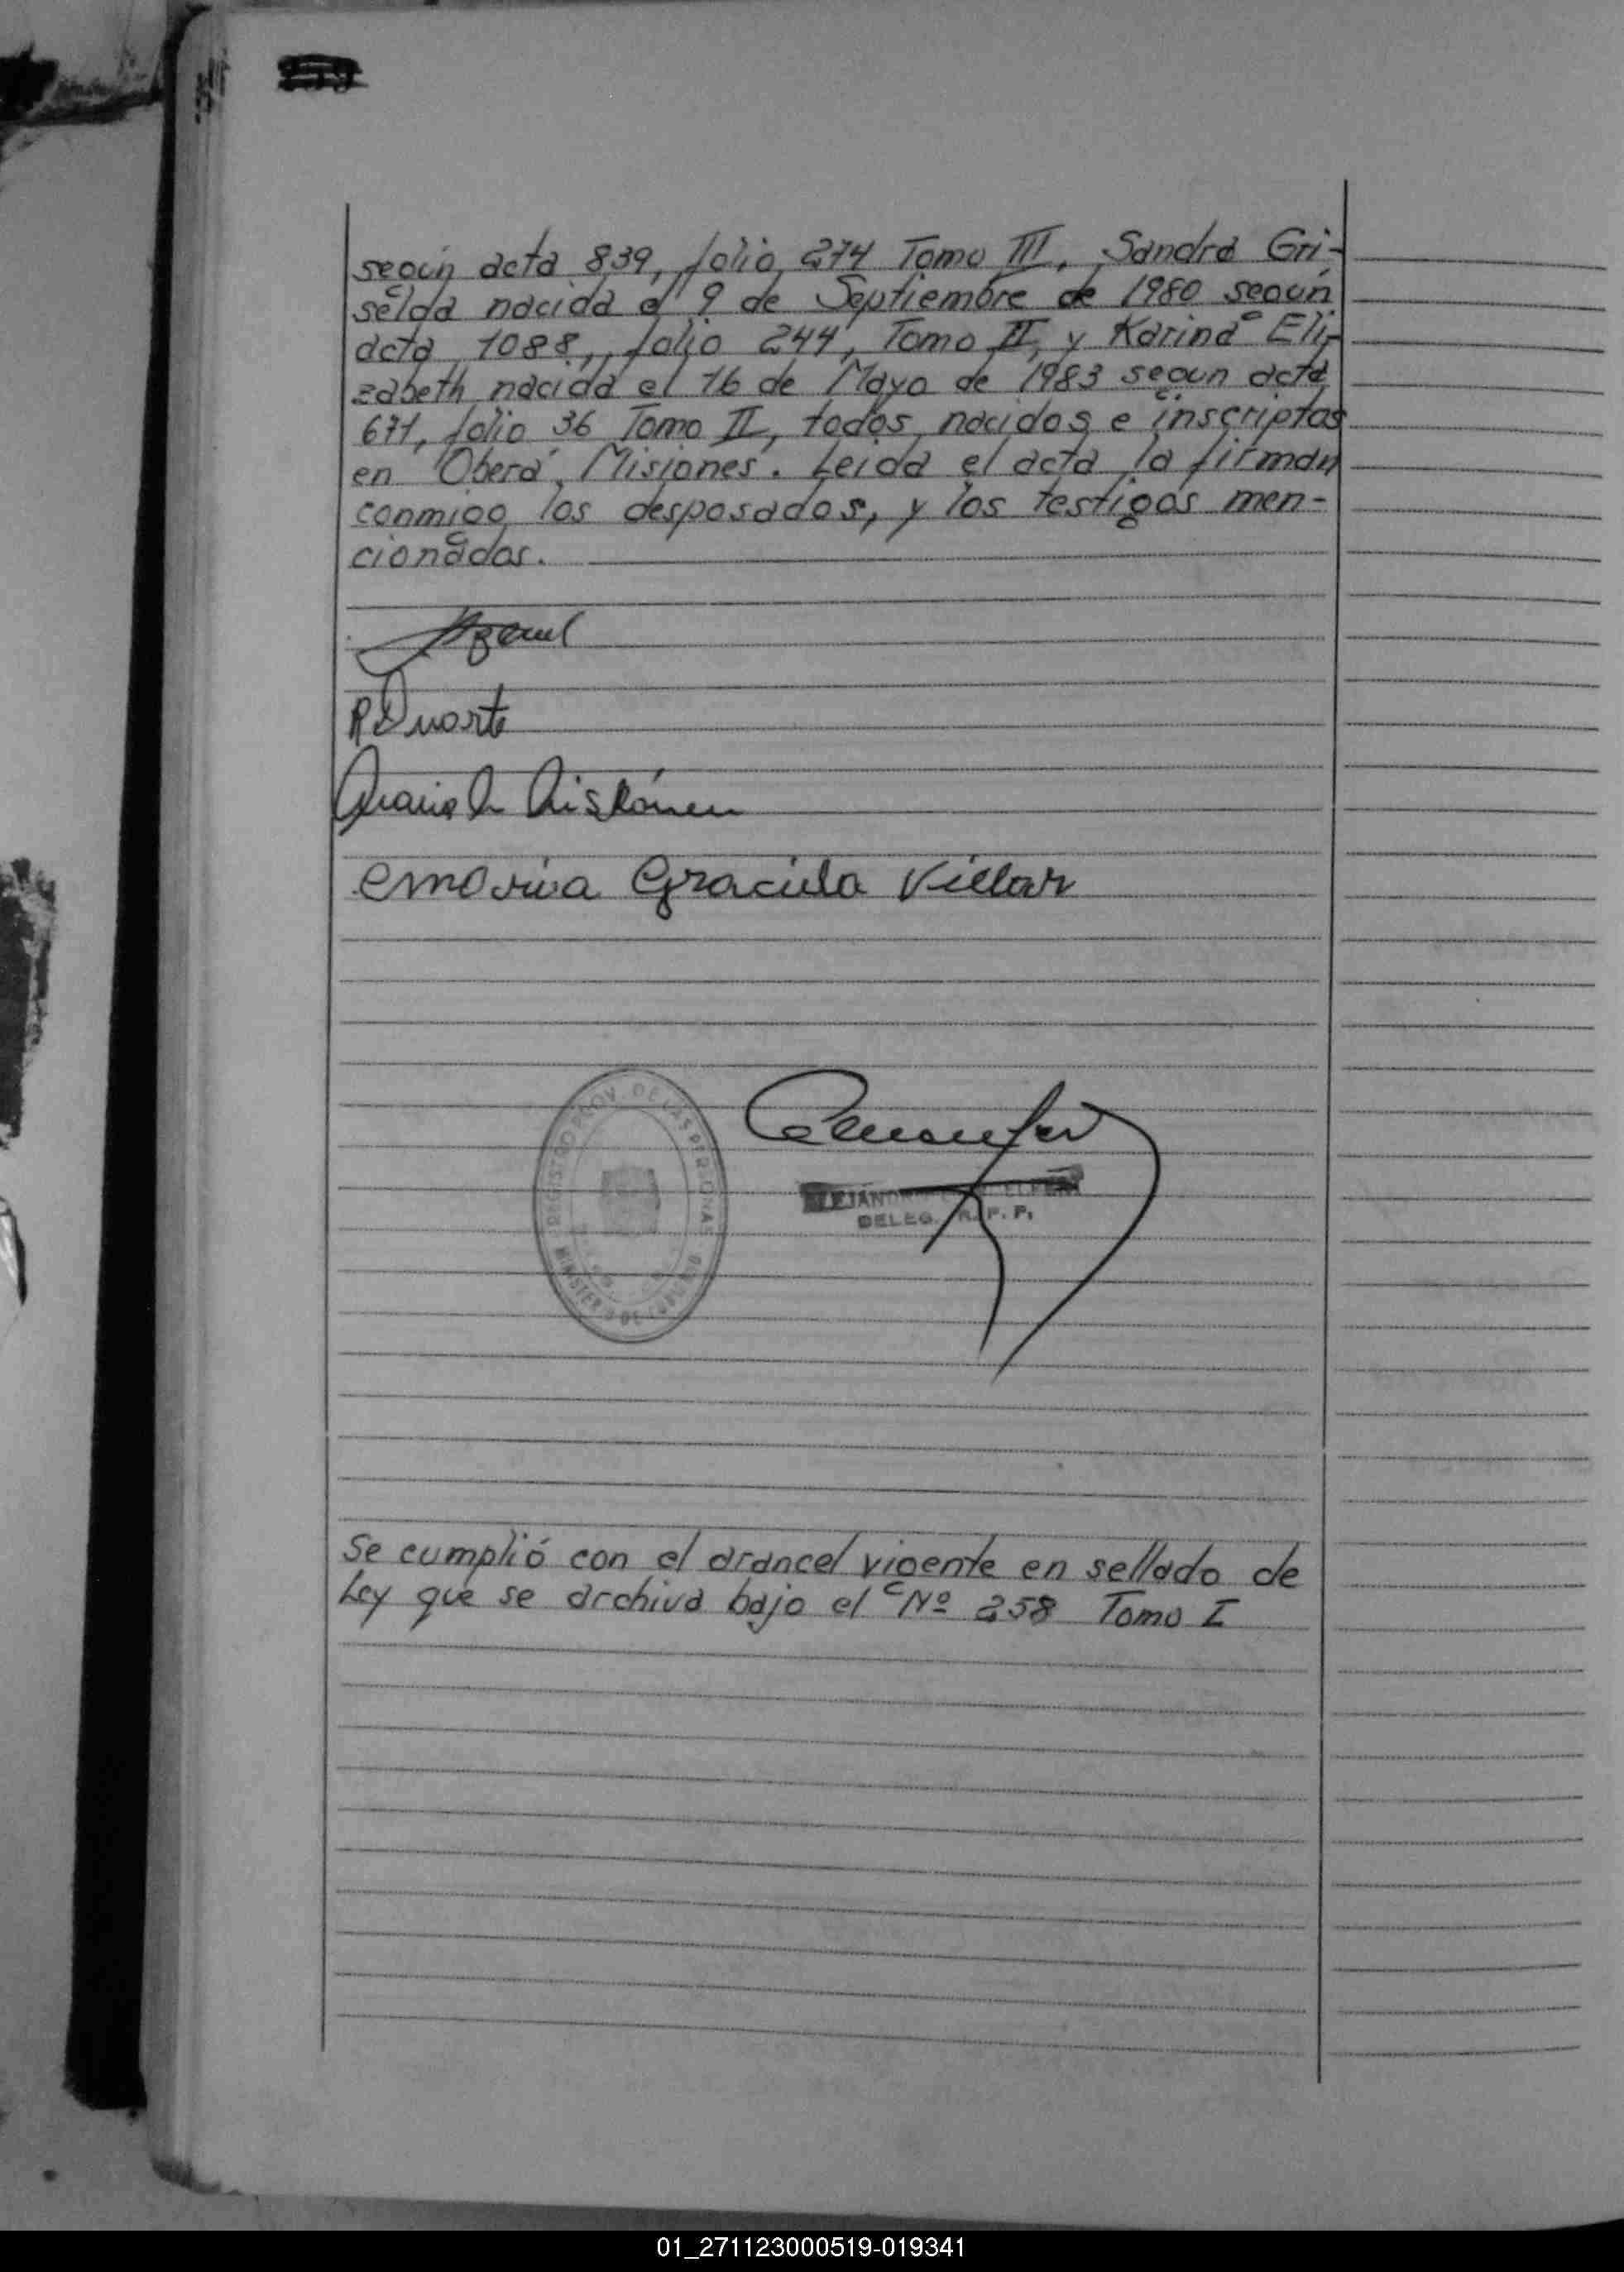 según acta 839, folio 274 Tomo III, Sandra Gri-
selda nacida el 9 de Septiembre de 1980 según
acta 1088, folio 244, Tomo II, y Karina Eli-
zabeth nacida el 16 de Mayo de 1983 segun acta
671, folio 36 Tomo II, todos nacidos e inscriptos
en Oberá, Misiones. Leida el acta la firman
conmigo los desposados, y los testigos men-
cionados.
R Duarte
Maria Graciela Villar
REGISTRO PROV. DE LAS PERSONAS
MINISTERIO DE GOBIERNO
DELEG. R. P. P.
Se cumplió con el arancel vigente en sellado de
Ley que se archiva bajo el Nº 258 Tomo I
01_271123000519-019341